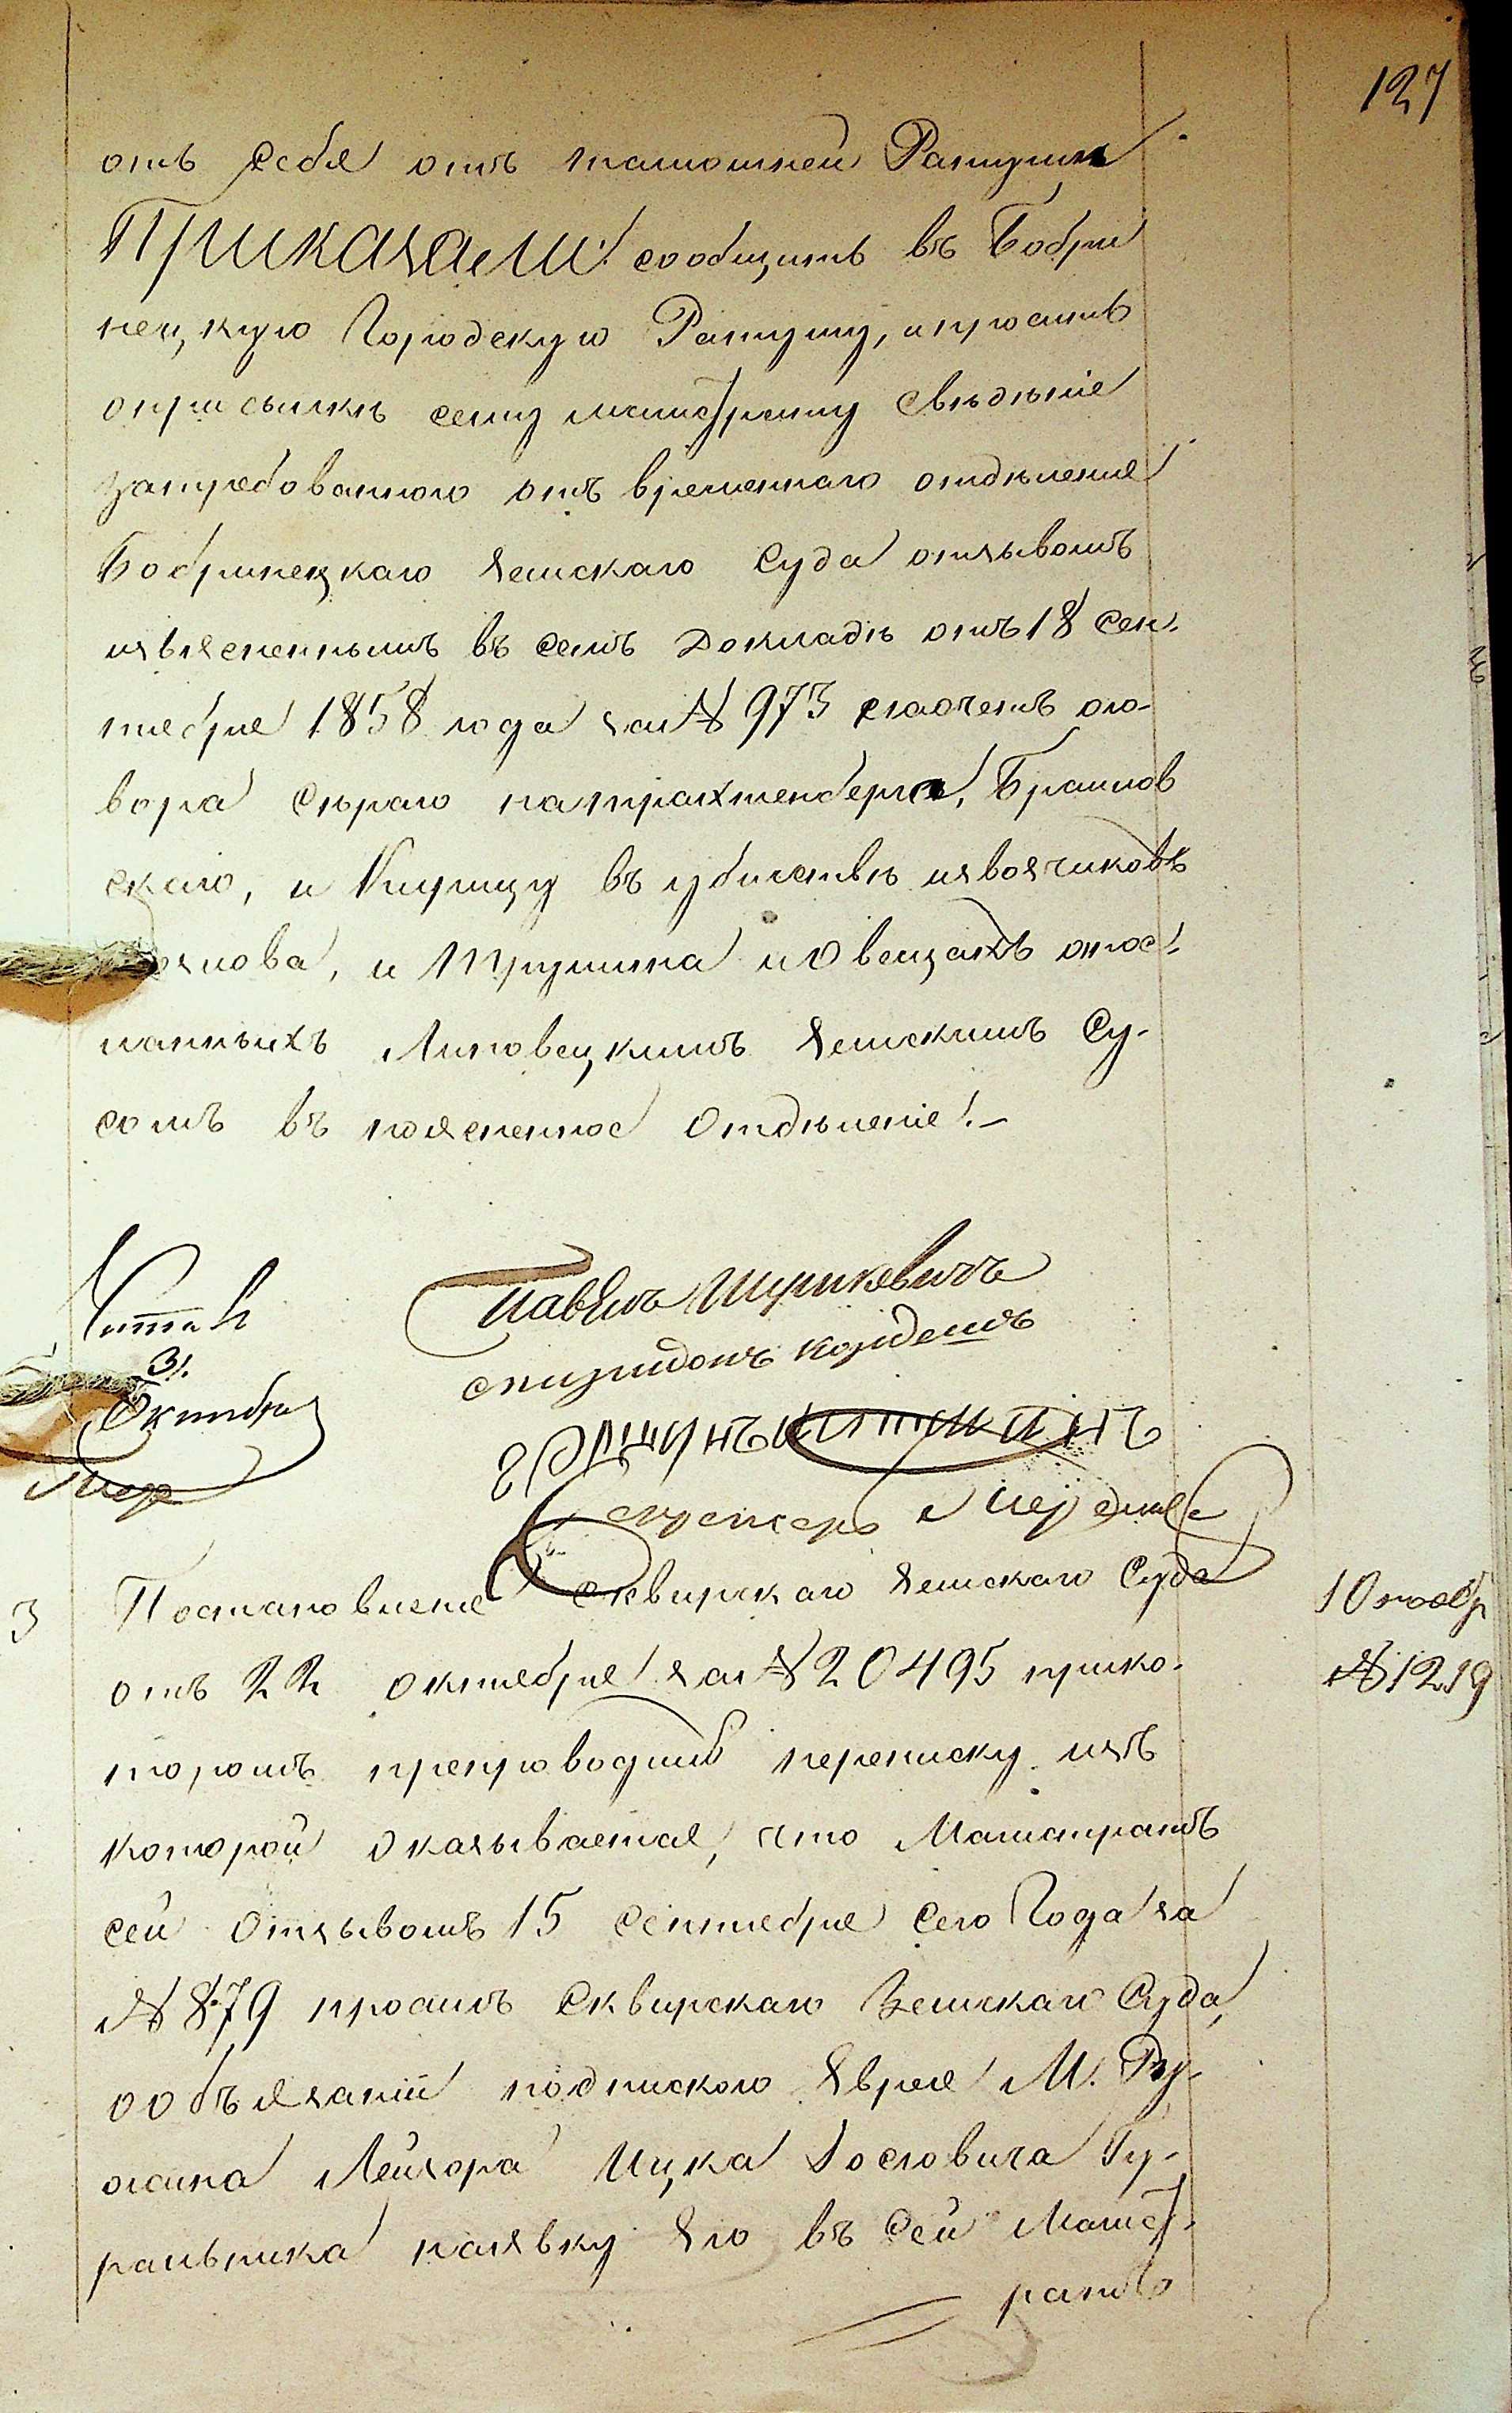 127
отъ себя отъ тамошней Ратуши
Приказали: сообщить въ Бобри
нецкую Городскую Ратушу, ипросить
оприсылкѣ сему магистрату свѣдѣніе
затребованного отъ временнаго отдѣления
Бобринецкаго Земскаго Суда отзывомъ
изъясненнымъ въ семъ докладѣ отъ 18 сен.
тября 1858 года за № 973 огово-
вора Сѣраго на Трахтенберга, Браилов
скаго, и Купицу въ убийствѣ извозчиковъ
и Трушина и О вещахъ отос
ланныхъ Липовецкимъ Земскимъ Су-
домъ въ поясненное Отдѣленіе.
Читалъ
31.
Октября
Павелъ
спиридонъ
Секретарь
3 Постановление Сквирскаго Земскаго Суда
10 ноябр
отъ 22 октября за № 20495 прико-
№ 1219
торомъ препроводивъ переписку изъ
которой оказывается, что Магистратъ
сей Отзывомъ 15 Сентября сего Года за
№ 879 просилъ Сквирскаго Земскаго Суда,
ообъязаніи подпискою Еврея М. Ру-
жина Лейзора Ицка Іосіовича Гу-
ральника наявку Его въ Сей Магист-
ратъ